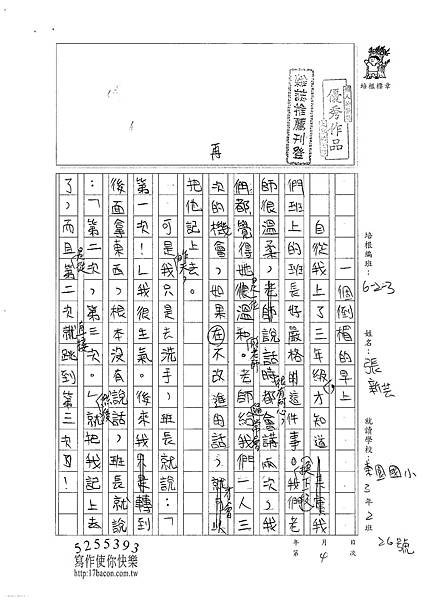 培根標章
優秀作品
雜誌推薦刊登
再
培根編班：
6-2-3
姓名：
張新芸
就讀學校：
東園國小
3年2班
26號
一個倒楣的早上
自從我上了三年級才知道
們班上的班長好嚴格的這件事。我們老
師很溫柔，老師說話時都會講兩次，我
們都覺得她很溫和。老師給我們一人三
次的機會，如果在不改進的話，就
把他記上去。
可是我只是去洗手，班長就說：「
第一次！」我很生氣。後來我轉到
後面拿東西，根本沒有說話，班長就說
：「第二次，第三次。」就把我記上去
了，而且第二次就跳到第三次了！
年 月 日
第 4 次
5255393
寫作使你快樂
http://17bacon.com.tw